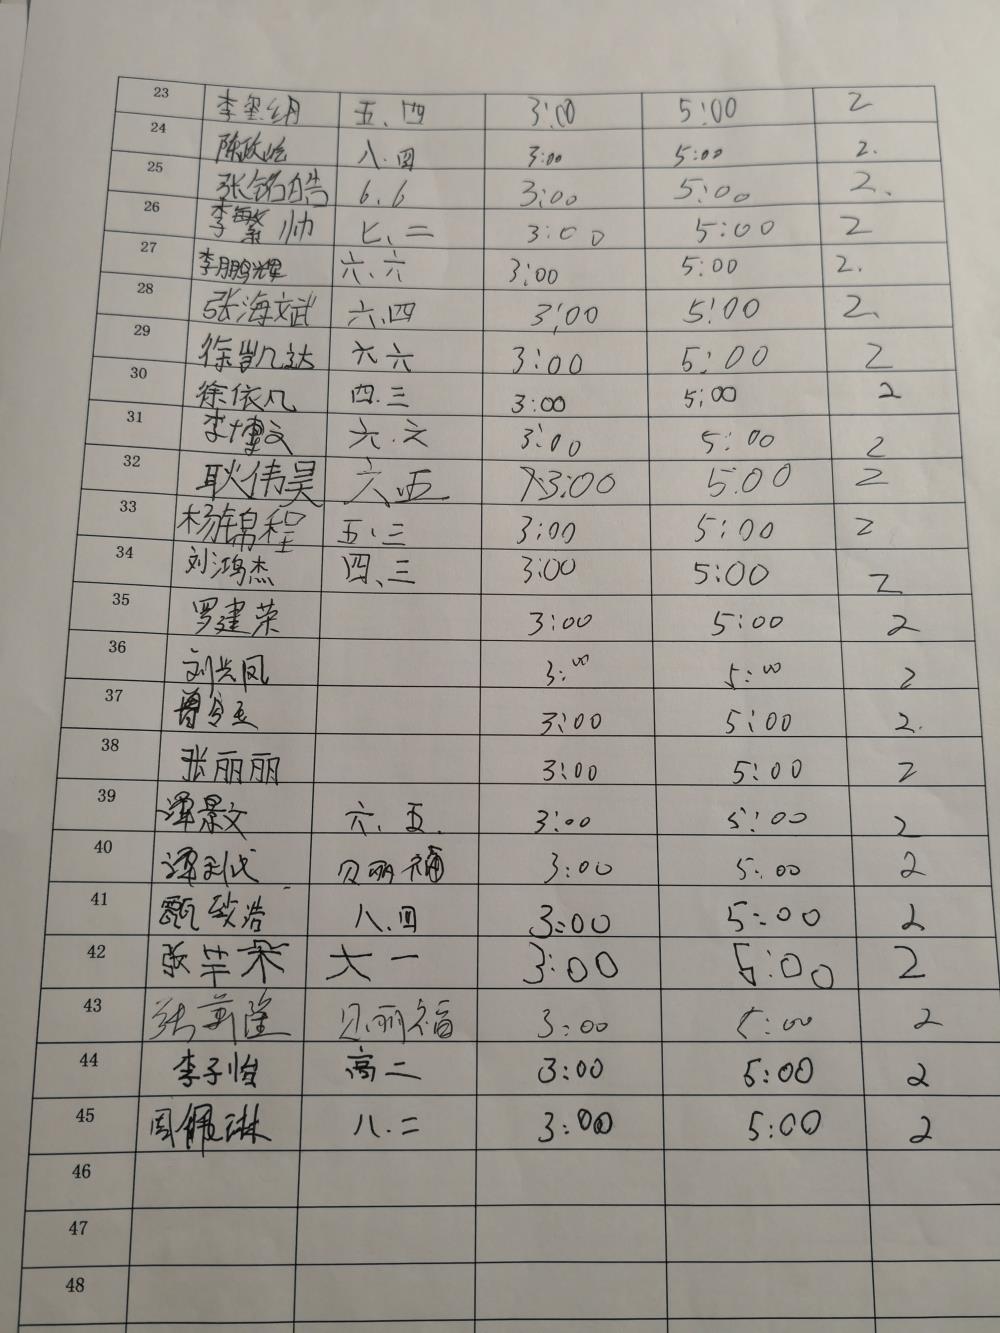 23 李玺 五、四 3:00 5:00 2
24 陈政屹 八.四 3:00 5:00 2.
25 张铭皓 6.6 3:00 5:00 2.
26 李繁帅 七、二 3:00 5:00 2
27 李鹏辉 六、六 3:00 5:00 2.
28 张海斌 六.四 3:00 5:00 2.
29 徐凯达 六六 3:00 5:00 2
30 徐依凡 四.三 3:00 5:00 2
31 李博文 六.六 3:00 5:00 2
32 耿伟昊 六.五 3:00 5:00 2
33 杨锦程 五、三 3:00 5:00 2
34 刘鸿杰 四、三 3:00 5:00 2
35 罗建荣 3:00 5:00 2
36 刘兴凤 3:00 5:00 2
37 曾 3:00 5:00 2.
38 张丽丽 3:00 5:00 2
39 谭景文 六、五. 3:00 5:00 2
40 谭利 贝丽福 3:00 5:00 2
41 甄致浩 八.四 3:00 5:00 2
42 张 六一 3:00 5:00 2
43 张 贝丽福 3:00 5:00 2
44 李子怡 高二 3:00 5:00 2
45 周佩琳 八.二 3:00 5:00 2
46
47
48